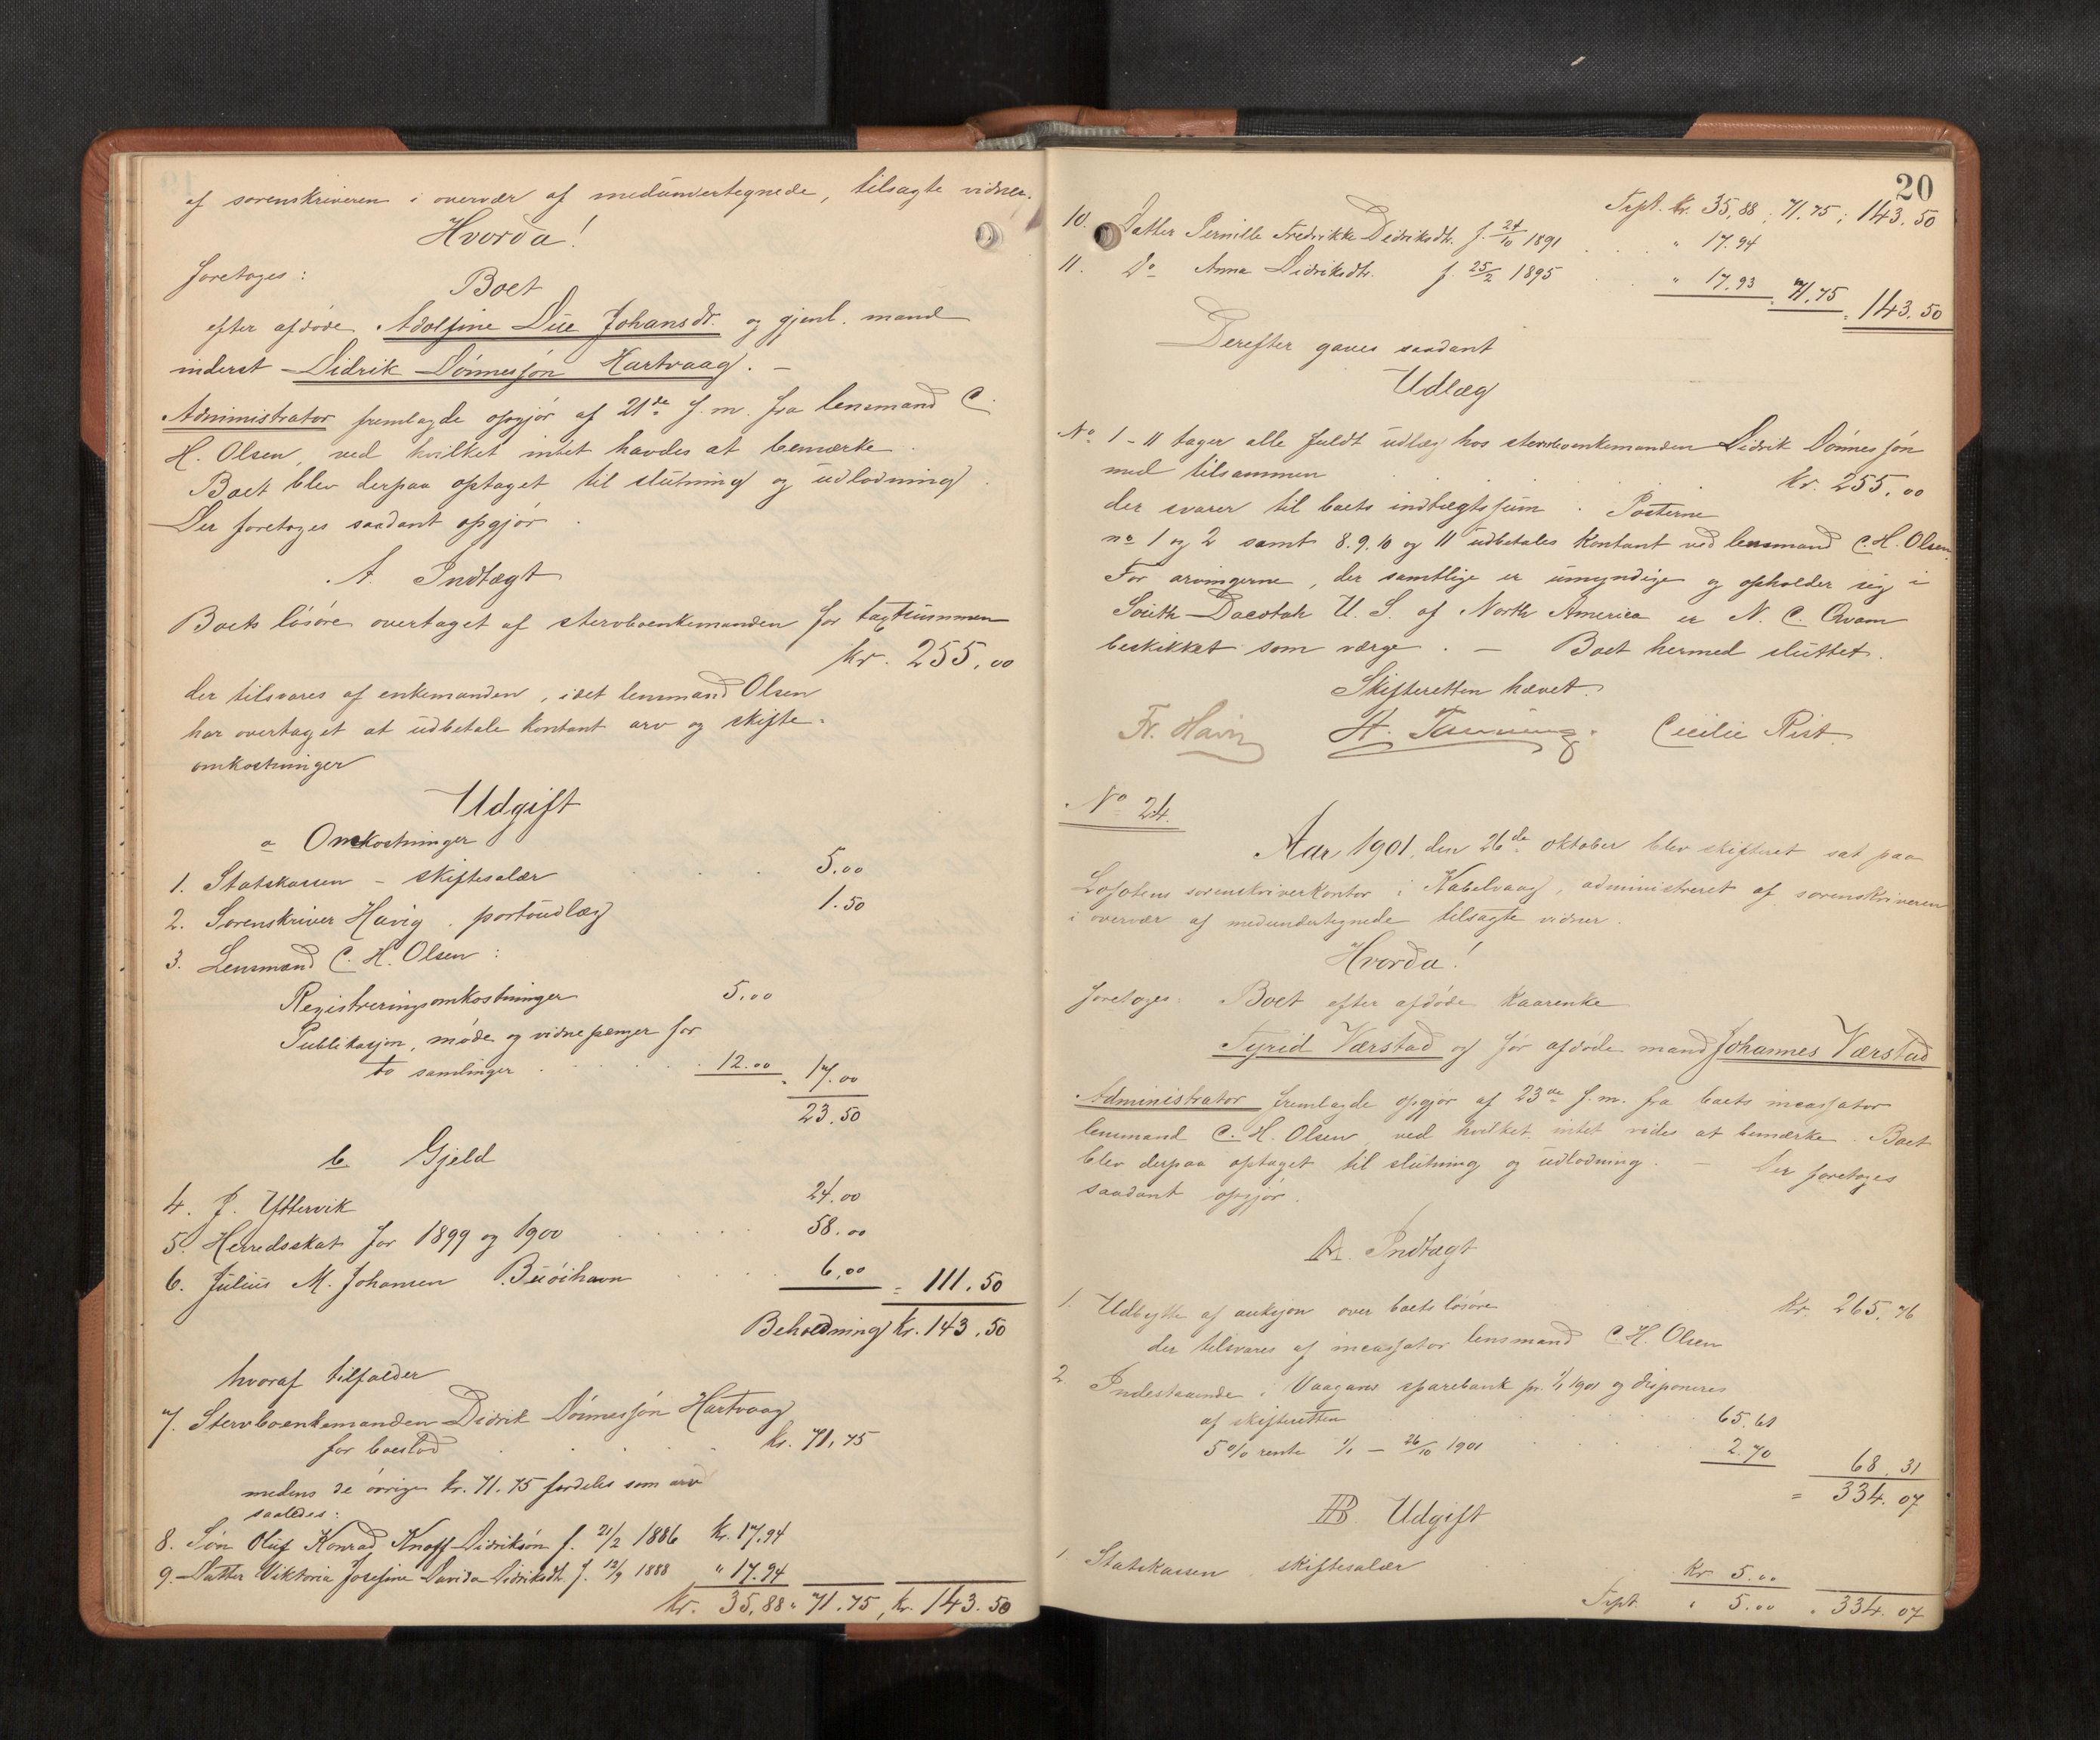 af sorenskriveren i overvær af medundertegnede, tilsagte vidner.
Hvorda!
foretoges:
Boet
efter afdøde Adolfine Due Johansdr. og gjenl. mand
inderst Didrik Dønnesjøn Hartvaag. —
Administrator fremlagde opgjør af 21de f.m. fra lensmand C.
H. Olsen, ved hvilket intet havdes at bemærke.
Boet blev derpaa optaget til slutning og udlodning.
Der foretoges saadant opgjør.
A. Indtægt
Boets løsøre overtaget af stervboenkemanden for taxtsummen
kr. 255,00
der tilsvares af enkemanden, idet lensmand Olsen
har overtaget at udbetale kontant arv og skifte-
omkostninger
Udgift
a Omkostninger
1. Statskassen – skiftesalær 5.00
2. Sorenskriver Havig. portoudlæg 1.50
3. Lensmand C. H. Olsen:
Registreringsomkostninger 5,00
Publikasjon, møde og vidnepenger for
to samlinger 12.00 " 17.00
23.50
b. Gjeld
4. J. Yttervik 24.00
5. Herredsskat for 1899 og 1900 58.00
6. Julius M. Johansen 6,00 = 111.50
Beholdning kr. 143.50
hvoraf tilfalder
7. Stervboenkemanden Didrik Dønnesjøn Hartvaag
for boeslod kr. 71,75
medens de øvrige kr. 71.75 fordeles som arv
saaledes:
8. Søn Oluf Konrad Knoff Didriksøn f. 21/2 1886 kr. 17,94
9. Datter Viktoria Josefine Davida Didriksdtr. f. 12/9 1888 " 17.94
kr. 35,88 " 71.75, kr. 143.50
20
Trpt. kr. 35,88: 71.75: 143.50
10. Datter Pernille Fredrikke Didriksdtr. f. 24/10 1891 " 17.94
11. Do Anna Didriksdtr. f. 25/2 1895 " 17.93 " 71,75 = 143.50
Derefter gaves saadant
Udlæg
No 1 – 11 tager alle fuldt udlæg hos stervboenkemanden Didrik Dønnesjøn
med tilsammen kr. 255,00
der svarer til boets indtægtssum. Posterne
no 1 og 2 samt 8. 9. 10 og 11 udbetales kontant ved lensmand C. H. Olsen.
For arvingerne, der samtlige er umyndige og opholder sig i
South Dacotah U. S. of North America er N. C. Qvam
beskikket som værge. — Boet hermed sluttet.
Skifteretten hævet.
Fr. Havig H. Cecilie Rist
No 24.
Aar 1901, den 26de oktober blev skifteret sat paa
Lofotens sorenskriverkontor i Kabelvaag, administreret af sorenskriveren
i overvær af medundertegnede tilsagte vidner.
Hvorda!
foretoges: Boet efter afdøde kaarenke
Syrid Værstad og før afdøde mand Johannes Værstad
Administrator fremlagde opgjør af 23de f.m. fra boets incassator
lensmand C. H. Olsen, ved hvilket intet vides at bemærke. Boet
blev derpaa optaget til slutning og udlodning. — Der foretoges
saadant opgjør.
A. Indtægt
1. Udbytte af auksjon over boets løsøre kr. 265,76
der tilsvares af incassator lensmand C. H. Olsen
2. Indestaaende i Vaagans sparebank pr. 1/1 1901 og disponeres
af skifteretten 65.61
5 % rente 1/1 – 26/10 1901 2.70 68.31
= 334.07
B Udgift
1. Statskassen skiftesalær kr 5.00
Trpt. " 5.00 " 334.07